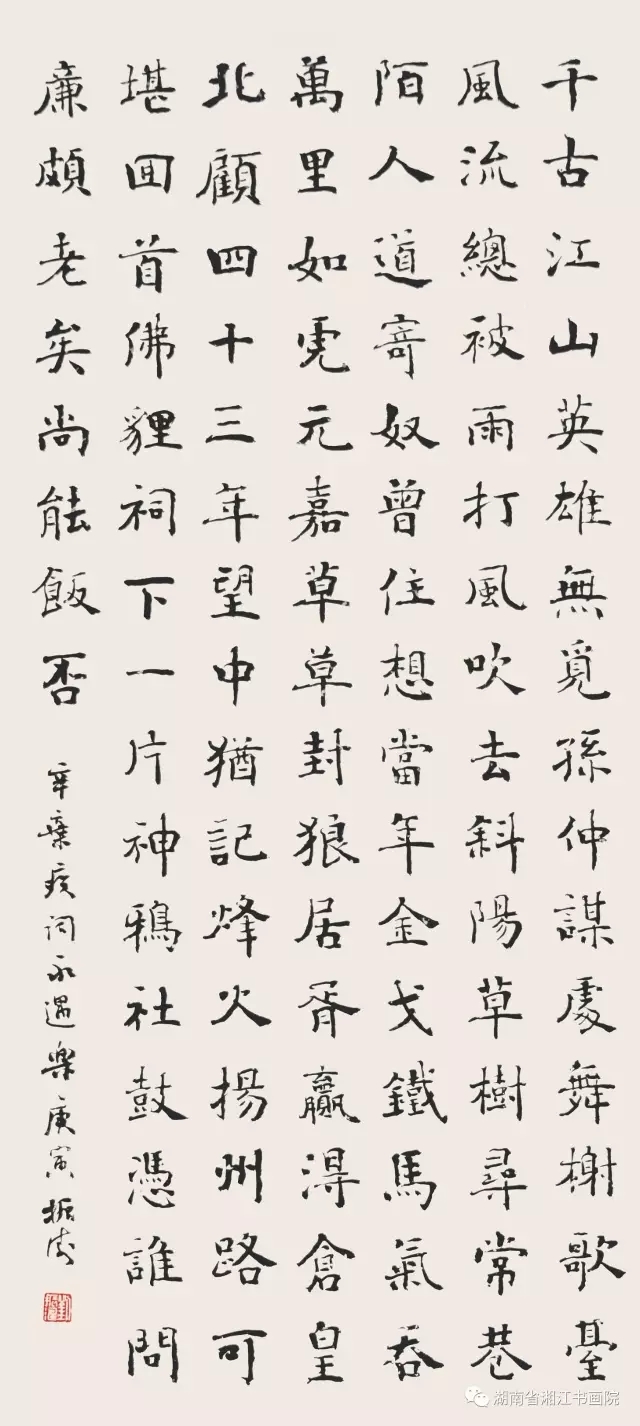 千古江山英雄無覓孫仲謀處舞榭歌臺
風流總被雨打風吹去斜陽草樹尋常巷
陌人道寄奴曾住想當年金戈鐵馬氣吞
萬里如虎元嘉草草封狼居胥贏得倉皇
北顧四十三年望中猶記烽火揚州路可
堪囬首佛貍祠下一片神鴉社鼓憑誰問
廉頗老矣尚能飯否
辛棄疾詞永遇樂庚寅振
湖南省湘江书画院